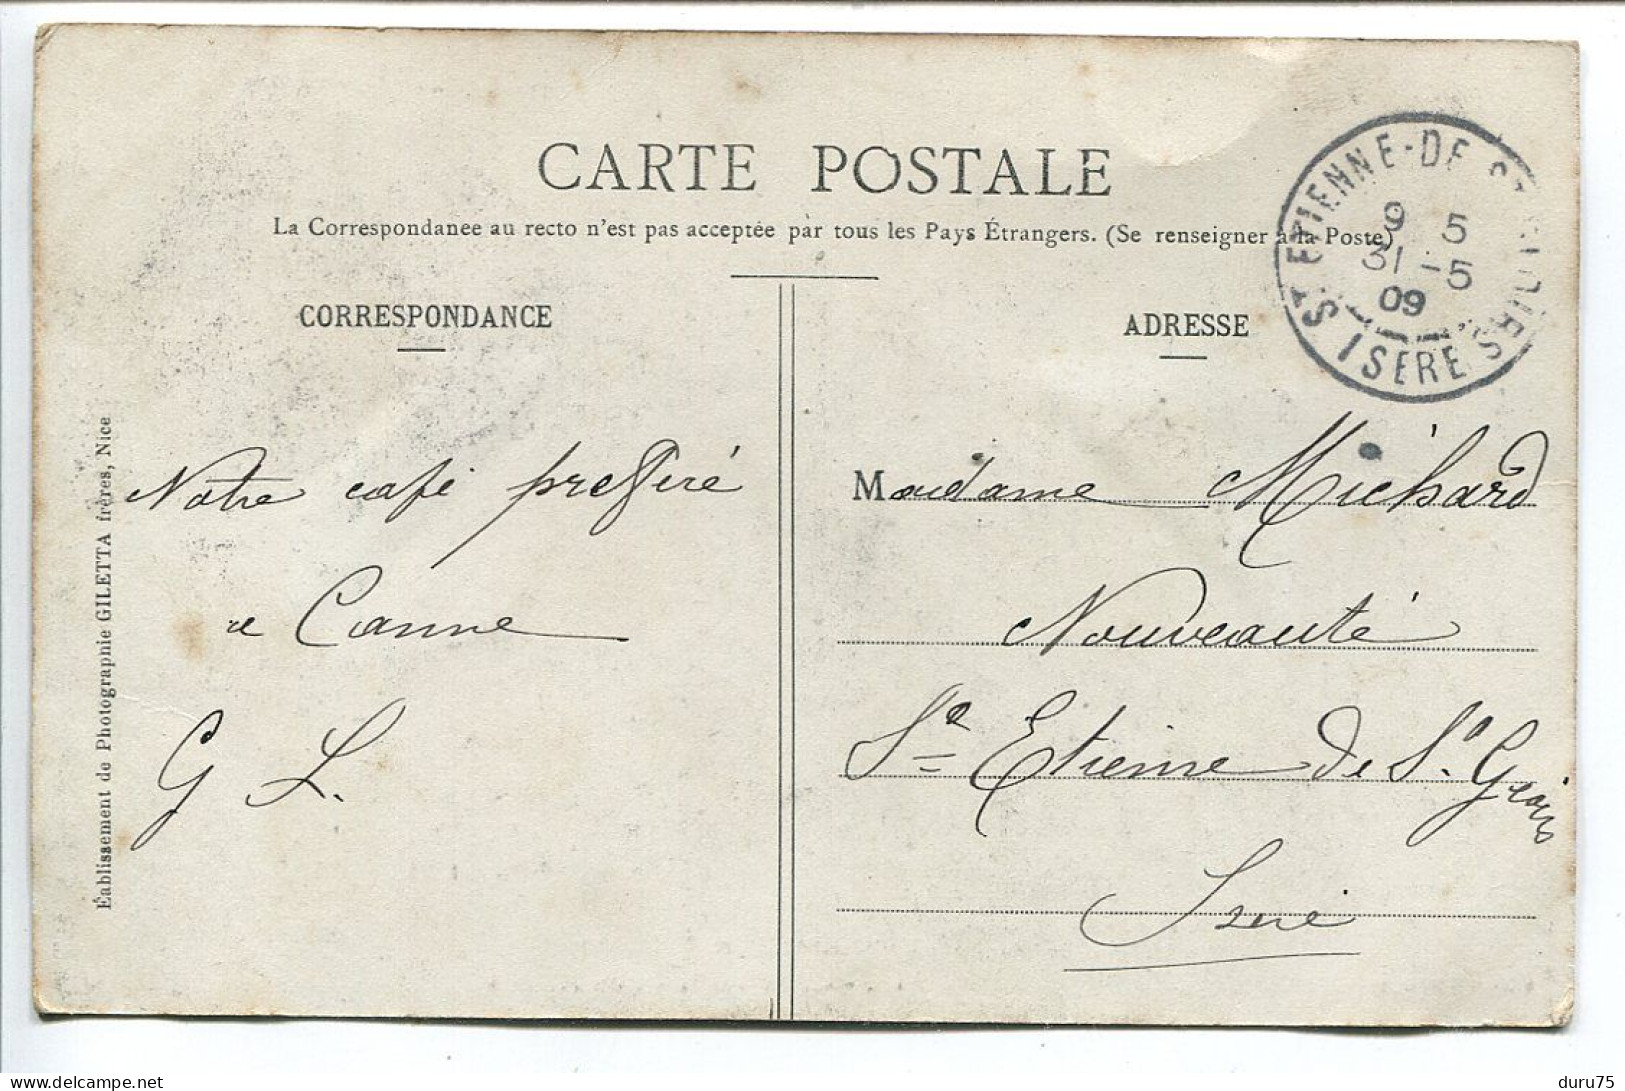 CARTE POSTALE
La Correspondance au recto n'est pas acceptée par tous les Pays Étrangers. (Se renseigner à la Poste)
CORRESPONDANCE
ADRESSE
ST ETIENNE-DE-ST
9 5
31 - 5
09
ISERE
Éablissement de Photographie GILETTA frères, Nice
Notre café prefféré
a Canne
G L.
Madame Michard
Nouveauté
St Etienne de St. Geoirs
Isère
delcampe.net
duru75